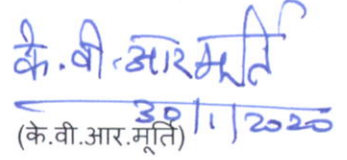 के.वी.आरमूर्ति
30/1/2020
(के.वी.आर.मूर्ति)